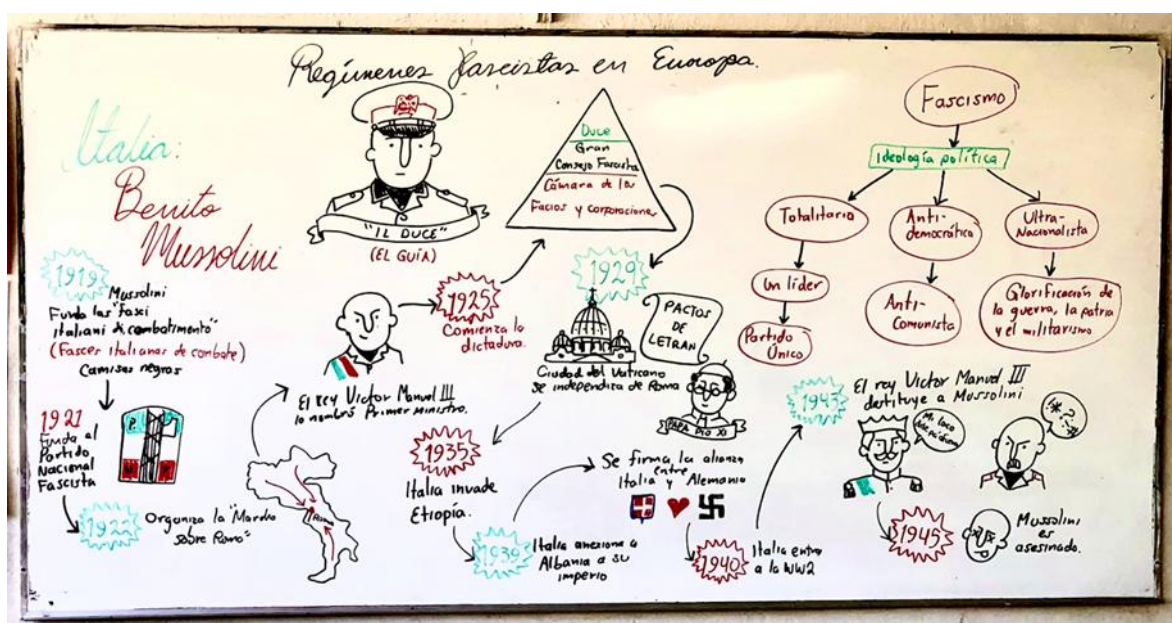 Regímenes fascistas en Europa.
Italia:
Benito
Mussolini
"IL DUCE"
(EL GUÍA)
1919
Mussolini
Funda las "Fasci
italiani di combatimento"
(Fasces italianas de combate)
Camisas negras
1921
Funda al
Partido
Nacional
Fascista
P.
1922
Organiza la "Marcha
sobre Roma"
Roma
El rey Victor Manuel III
lo nombra Primer ministro.
1925
Comienza la
dictadura.
Duce
Gran
Consejo Fascista
Cámara de los
Facios y corporaciones
1929
PACTOS
DE
LETRAN
Ciudad del Vaticano
se independiza de Roma
PAPA PIO XI
1935
Italia invade
Etiopía.
1939
Italia anexiona a
Albania a su
imperio
Se firma la alianza
entre
Italia y Alemania
1940
Italia entra
a la WW2
1943
El rey Victor Manuel III
destituye a Mussolini
1945
Mussolini
es
asesinado.
Fascismo
Ideología política
Totalitario
Un líder
Partido
Único
Anti-
democrática
Anti-
Comunista
Ultra-
Nacionalista
Glorificación de
la guerra, la patria
y el militarismo